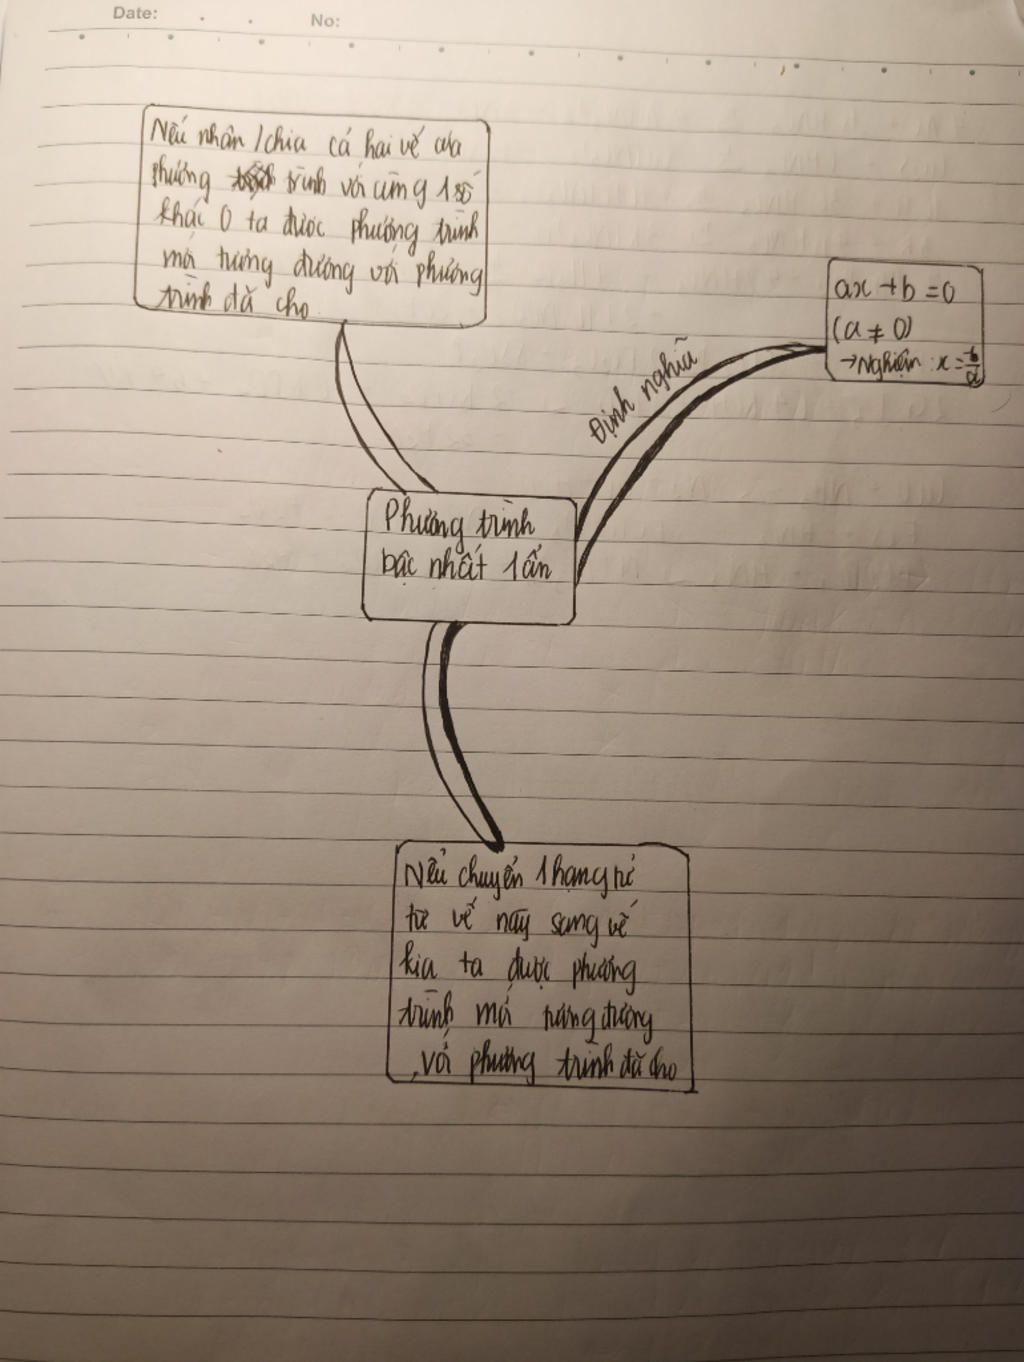 Date:
No:
Nếu nhân/chia cả hai vế của
phương trình với cùng 1 số
khác 0 ta được phương trình
mới tương đương với phương
trình đã cho
ax + b = 0
(a ≠ 0)
→ Nghiệm: x = -b/a
Định nghĩa
Phương trình
bậc nhất 1 ẩn
Nếu chuyển 1 hạng tử
từ vế này sang vế
kia ta được phương
trình mới tương đương
với phương trình đã cho